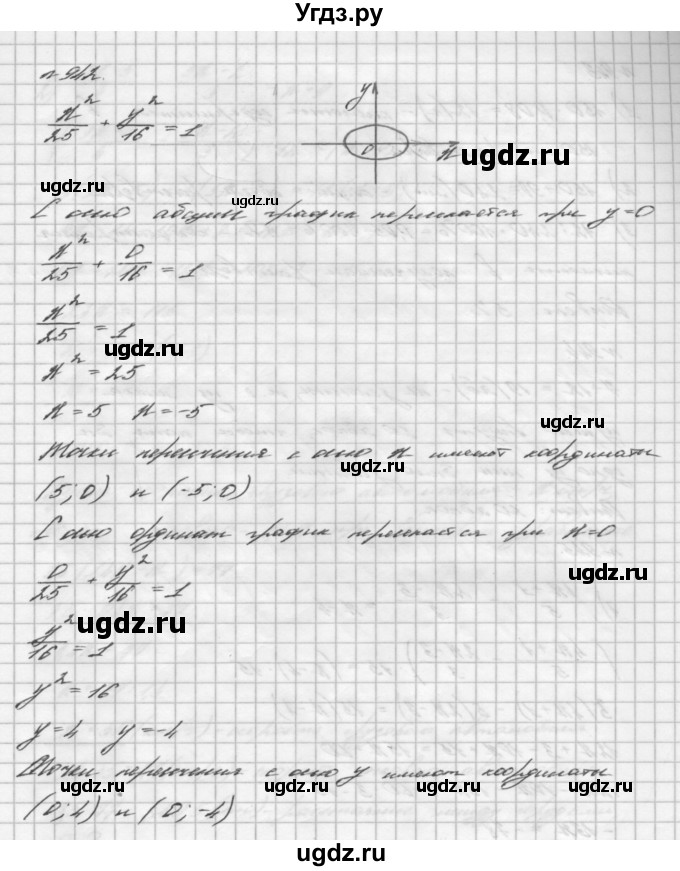 Угдз.ру
№942.
x²/25 + y²/16 = 1
y
0
x
ugdz.ru
ugdz.ru
ugdz.ru
С осью абсцисс график пересекается при y=0
x²/25 + 0/16 = 1
x²/25 = 1
ugdz.ru
x² = 25
x=5 x=-5
ugdz.ru
Точки пересечения с осью x имеют координаты
ugdz.ru
(5;0) и (-5;0)
С осью ординат график пересекается при x=0
0/25 + y²/16 = 1
ugdz.ru
ugdz.ru
y²/16 = 1
y² = 16
y=4 y=-4
Точки пересечения с осью y имеют координаты
ugdz.ru
ugdz.ru
ugdz.ru
(0;4) и (0;-4)
ugdz.ru